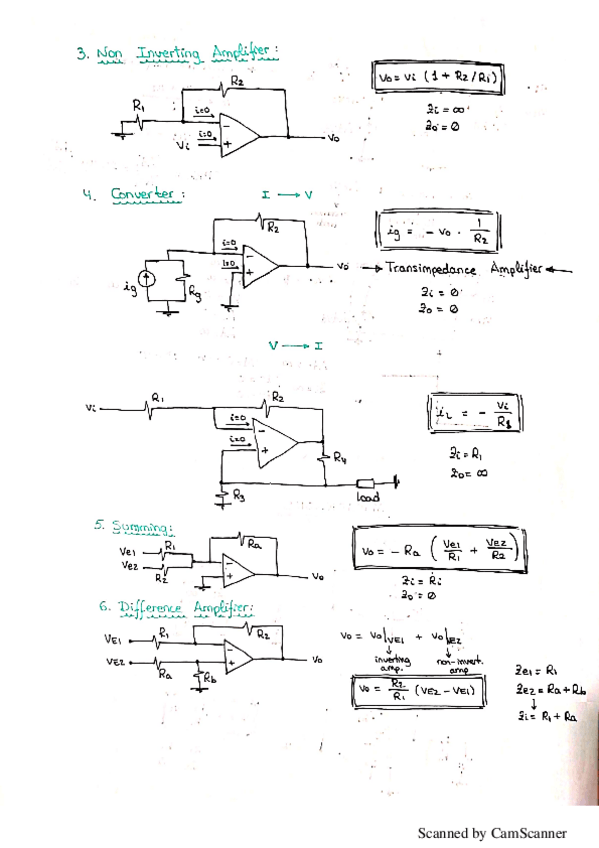 3. Non Inverting Amplifier:
R2
R1
i=0
i=0
Vi
-
+
Vo
Vo = Vi (1 + R2/R1)
Zi = ∞
Zo = 0
4. Converter: I → V
R2
i=0
i=0
-
+
Vo
ig
Rg
ig = - Vo · 1/R2
→ Transimpedance Amplifier ←
Zi = 0
Zo = 0
V → I
Vi
R1
R2
i=0
i=0
-
+
R4
R3
load
iL = - Vi/R3
Zi = R1
Zo = ∞
5. Summing:
Ve1
R1
Ve2
R2
Ra
-
+
Vo
Vo = - Ra (Ve1/R1 + VE2/R2)
Zi = Ri
Zo = 0
6. Difference Amplifier:
VE1
R1
R2
VE2
Ra
Rb
-
+
Vo
Vo = Vo|VE1 + Vo|VE2
inverting amp.
non-invert. amp
Vo = R2/R1 (VE2 - VE1)
Ze1 = R1
Ze2 = Ra + Rb
↓
Zi = R1 + Ra
Scanned by CamScanner